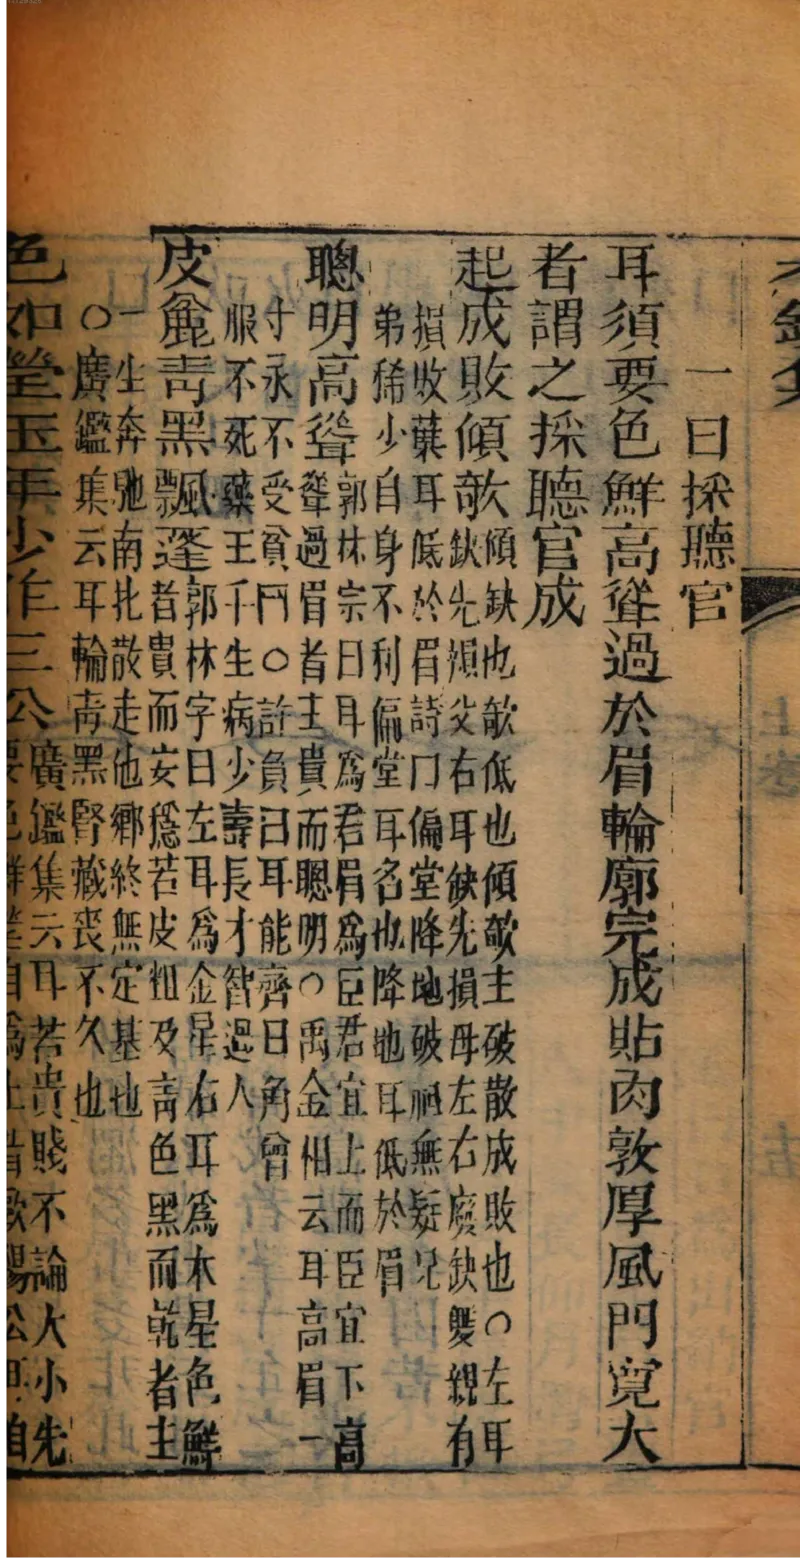 一曰採聽官
耳須要色鮮高聳過於眉輪廓完成貼肉敦厚風門寬大
者謂之採聽官成
起成敗傾欹
傾缺也欹低也傾欹主破散成敗也○左耳
缺先損父右耳缺先損母左右廢缺雙親有
損敗葉耳低於眉詩门偏堂降地破祖無疑兄
弟稀少自身不利偏堂耳名也降地耳低於眉
聰明高聳
郭林宗曰耳爲君眉爲臣君宜上而臣宜下高
聳過眉者主貴而聰明○禹金相云耳高眉一
寸永不受貧鬥○許負曰耳能齊日角曾
服不死藥王千生病少壽長才智過人
皮麄靑黑飄蓬
郭林字曰左耳爲金星右耳爲木星色鮮
者貴而安穩若皮粗及靑色黑而乾者主
一生奔馳南北散走他鄉終無定基也
○廣鑑集云耳輪靑黑腎藏喪不久也
色如瑩玉年少作三公
廣鑑集云耳若貴賤不論大小先